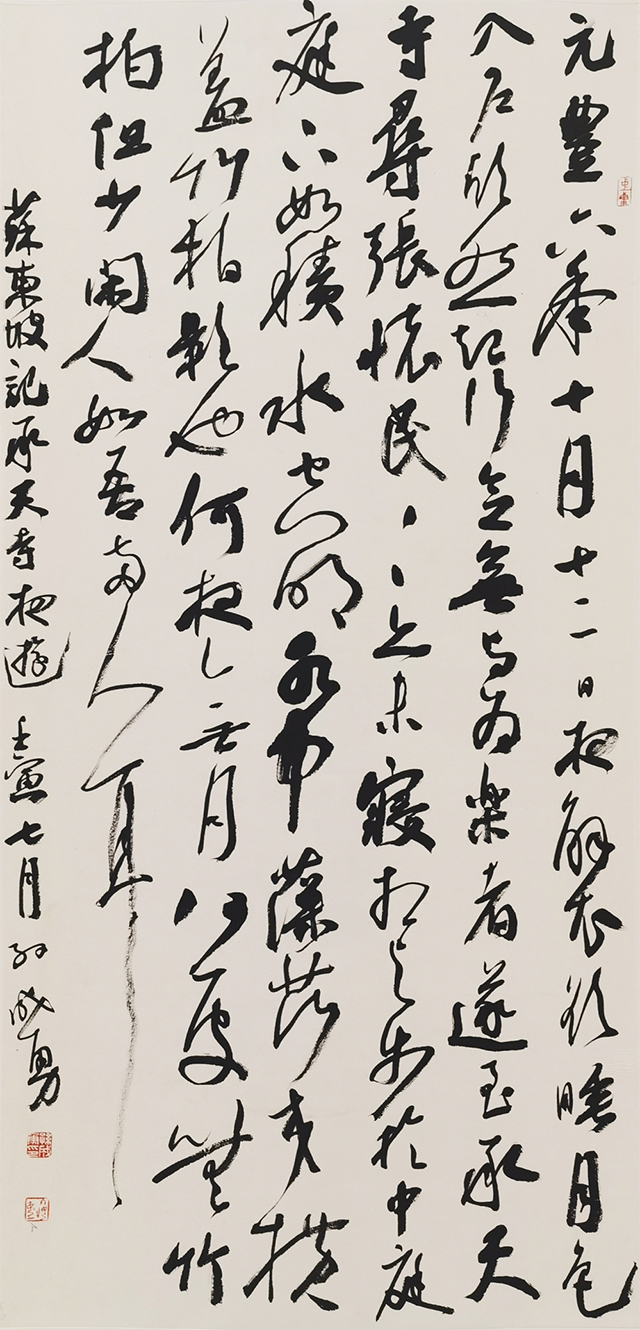 元豐六年十月十二日夜解衣欲睡月色
入户欣然起行念無与為楽者遂至承天
寺尋張懷民々亦未寢相与步於中庭
庭下如積水空明水中藻荇交横
蓋竹柏影也何夜无月何處無竹
柏但少閑人如吾兩人耳
蘇東坡記承天寺夜遊 壬寅七月 孙成勇